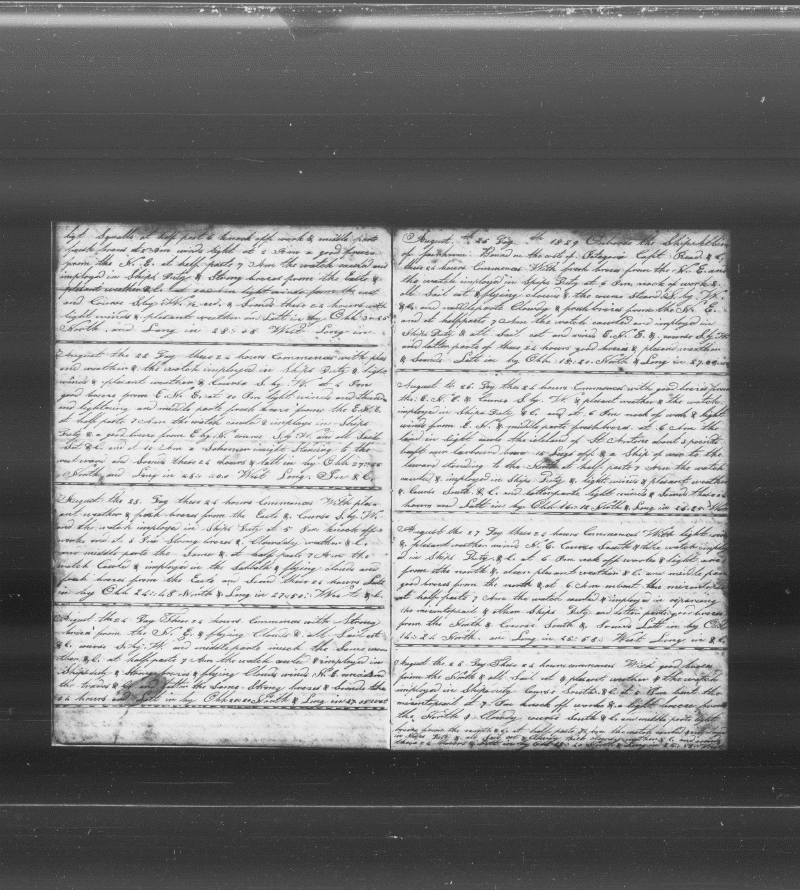 lgt. Squalls at half past 6 knock off work & middle parts
fresh breezes at 2 Am winds light at 4 Am a good breeze
from the N. E. at half parts 7 Am the watch caurled and
imployed in Ships Duty & Strong breezes from the Easte &
pleasant weather & C. last
and Course S by W. & Sounds these 24 hours with
light winds & pleasant weather an Latt in by Obb.
North. and Long in 28:08 West Long in
August the 22 Day these 24 hours Commences with plea
and weather & the watch imployed in Ships Duty & light
winds & plesant weather & Course S. by W. at 4 Pm
good breezes from E. N. E. at 10 Pm light winds and thunder
and lightning and middle parts fresh breeze from the E.N.E.
at half parts 7 Am the watch caurled & imploye in Ships
Duty & a good breeze from E by N. course S by W. an all Sail
Sat & C. an at 11 Am a Schooner Standing to the
these 24 hours & latt in by Obb 27:55
North and Long in West Long. In & C.
August the 23. Day these 24 hours Commences With plea
ant weather & fresh breezes from the East & Course S. by W.
and the watch imploye in Ships Duty at 5 Pm knock off
works and at 8 Pm Strong breeze & Clowddy weather & C.
and middle parts the Same & at half parts 7 Am the
watch Caurled & imployed in the & flying clouds and
fresh breezes from the Easte an Send these 24 hours Latt
in by Obb 24:48 North & Long in 27:50: West & C.
August the 24 Day These 24 hours Commences with Strong
breeses from the N. E. & flying Clouds & all Sail sat
& C. course S. by W. and middle parts much the Same wea
ther & C. at half parts 7 Am the watch caurled & imployed in
Shipsduty & Strong breezes & flying Clouds winds N. E.
the trades & C. and latter the Same. Strong breeses & Sounds these
24 hours Latt in by Obb North & Long in 27.08 west
August, th 25 Day th 1829 Onboard the Ship
of fairhaven Bound on the cost of Patagonia Capt. Read & C.
these 24 hours Commences With fresh breeze from the N. E. and
the watch imployed in Ships Duty at 6 Pm nock of work &
all Sail Sat & flying clouds & the course Stearing S. by W.
& C. and middle parts Clowdy & fresh breezes from the N. E.
and at half parts 7 Am the watch caurled and imployed in
Ships Duty & all Sail sat and winds E. N. E. & course S. by W.
and latter parts of these 24 hours good breezes & plesant weather
& Sounds. Latt in by Obb. 18:20. North & Long in 27.00
August th 26. Day the 24 hours Commences with good breezes from
the. E. N. E & Course S. by W. & plesant weather & the watch
imploye in Ships Duty & C. and at 6 Pm nock of work & light
winds from E. N. & middle parts fresh breeze. at 6 Am the
land in sight made the island of St Antone about 3 points
baft our Larboard beam 15 Leags off & a Ship of war to the
leward Standing to the North at half parts 7 Am the watch
caurled & imployed in Ships Duty & light winds & plesant weather
& Course South. & C. and latter parts light winds & Sounds these 24
hours and Latt in by Obb. 16:12 North & Long in 25.20 West
August the 27 Day these 24 hours Commences With light winds
& plesant weather wind N. E. Course South & the watch imploy
d in Ships Duty. & C. at 6 Pm nock off works & light airs
from the north & clear plesant weather & C. and middle parts
good breeses from the north & at 6 Am onbent the mizentopsail
at half parts 7 Am the watch caurled & imployed in repairing
the mizentopsail & other Ships Duty and latter parts good breezes
from the North & Course South & Sounds Latt in by Obb
14:24 North. an Long in 25:58: West Long in & C.
August the 28 Day These 24 hours commences With good breeses
from the North & all Sail sat & plesant weather & the watch
imployed in Shipsduty Course South. & C. at 4 Pm bent the
mizentopsail at 7 Pm knock off works & a light breeze from
the North & Clowdy course South & C. and middle parts light
breeze from the north & C. at half parts 7 Am the watch caurled
in Ships Duty & all Sail sat &
these 24 hours & Latt in by Obb